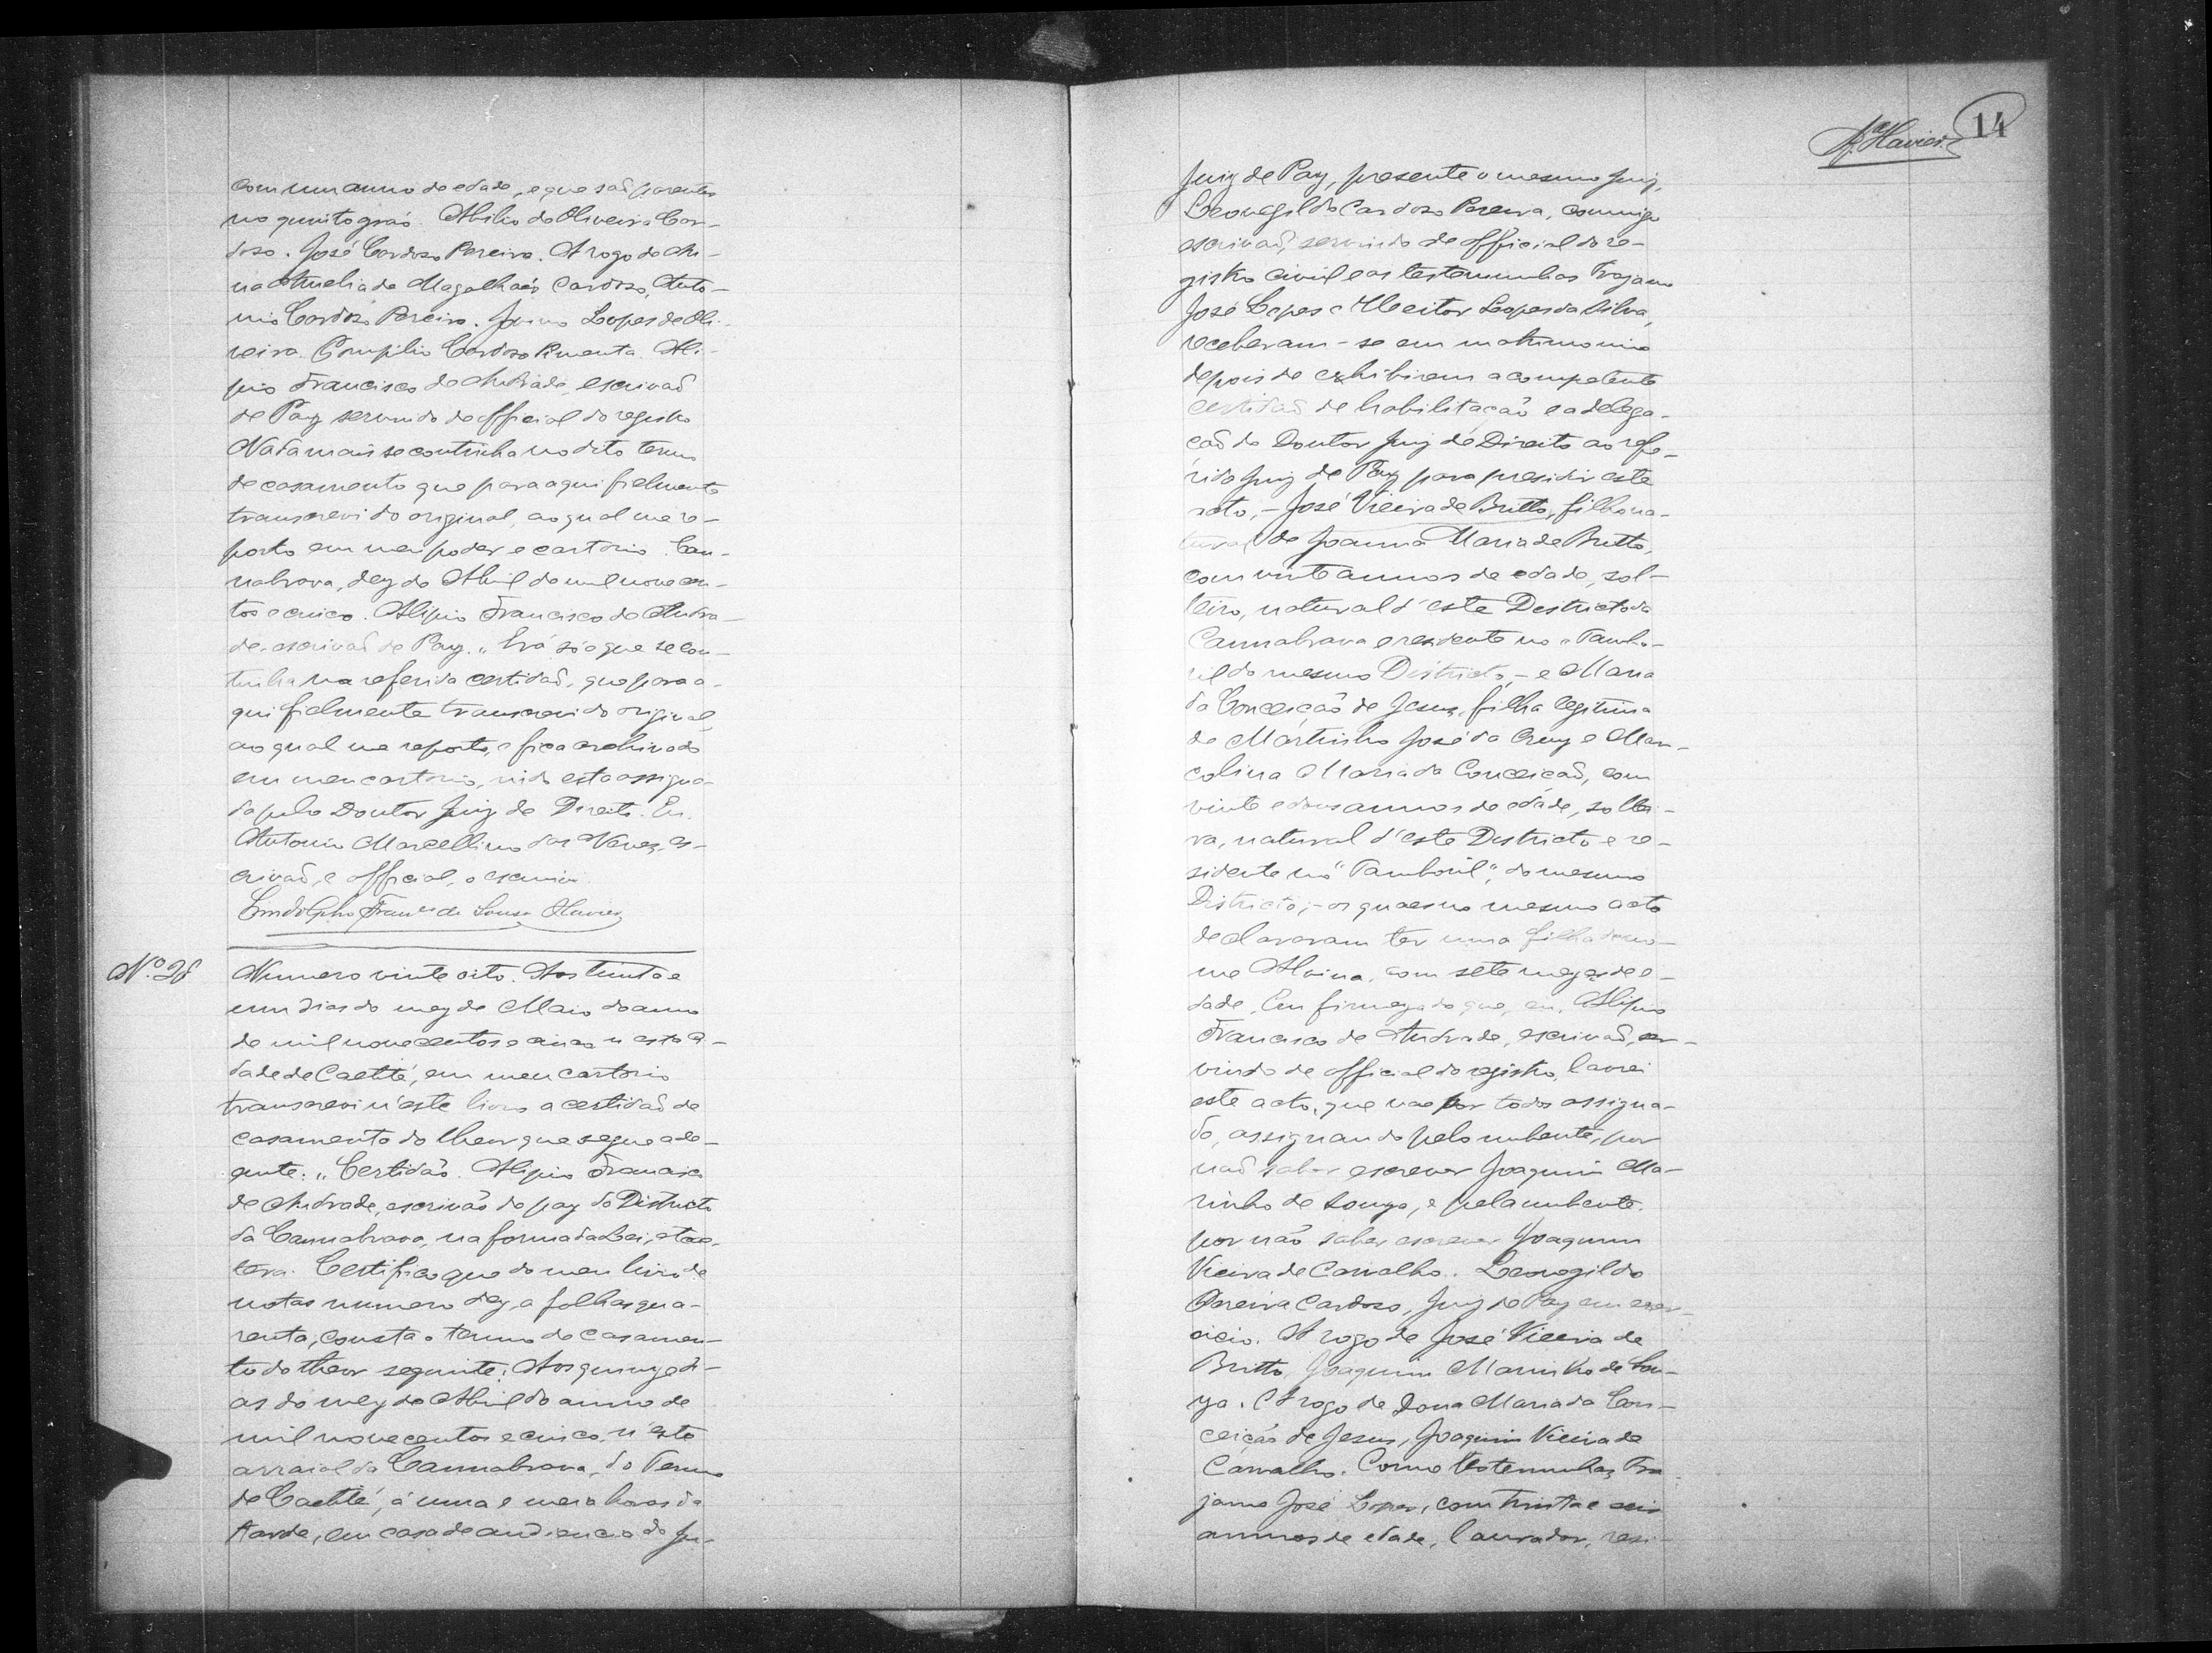 com um anno de edade, e que são parentes
no quinto gráo. Abilio de Oliveira Car-
doso. José Cardoso Pereira. A rogo de An-
na Amelia de Magalhães Cardoso, Anto-
nio Cardoso Pereira. Lopes de Oli-
veira. Pompilio Cardoso Pimenta. Ali-
pio Francisco de Andrade, escrivaõ
de Paz servindo de official do registro
Nada mais se continha no dito termo
de casamento que para aqui fielmente
transcrevi do original, ao qual me re-
porto em meu poder e cartorio. Can-
nabrava, dez de Abril de mil novecen-
tos e cinco. Alipio Francisco de Andra-
de, escrivaõ de Paz. „ Era só o que se con-
tinha na referida certidaõ, que para a-
qui fielmente transcrevi do original,
ao qual me reporto, e fica archivado
em meu cartorio, indo esta assigna-
da pelo Doutor Juiz de Direito. Eu,
Antonio Marcellino das Neves, es-
crivaõ, e official, o escrevi.
Lindolpho Franco de Sousa Xavier
Nº. 28
Numero vinte oito. Aos trinta e
um dias do mez de Maio do anno
de mil novecentos e cinco n'esta ci-
dade de Caetité, em meu cartorio
transcrevi n'este livro a certidaõ de
casamento do theor que segue ade-
ante: „ Certidão. Alipio Francisco
de Andrade, escrivão de paz do Districto
da Cannabrava, na forma da Lei, etce-
tera. Certifico que do meu livro de
notas numero dez, a folhas qua-
renta, consta o termo de casamen-
to do theor seguinte: Aos quinze di-
as do mez de Abril do anno de
mil novecentos e cinco, n'este
arraial da Cannabrava, do Termo
de Caetité, á uma e meia horas da
tarde, em casa de audiencia do Ju-
Xavier 14
Juiz de Paz, presente o mesmo Juiz,
Leovegildo Cardoso Pereira, commigo
escrivaõ, servindo de official do re-
gistro civil e as testemunhas Trajano
José Lopes e Heitor Lopes da Silva,
receberam-se em matrimonio
depois de exhibirem a competente
certidaõ de habilitação e a delega-
çaõ do Doutor Juiz de Direito ao refe-
rido Juiz de Paz para presidir este
acto, - José Vieira de Britto, filho na-
tural de Joanna Maria de Britto,
com vinte annos de edade, sol-
teiro, natural d'este Destricto da
Cannabrava e residente no „ Tambo-
ril do mesmo Districto, - e Maria
da Conceição de Jesus, filha legitima
de Martinho José da Cruz e Mar-
colina Maria da Conceicaõ, com
vinte e dous annos de edade, soltei-
ra, natural d'este Destricto e re-
sidente no "Tamboril", do mesmo
Districto; - os quaes no mesmo acto
declararam ter uma filha de no-
me Alvina, com sete mezes de e-
dade. Em firmeza do que, eu, Alipio
Francisco de Andrade, escrivaõ, ser-
vindo de official do registro, lavrei
este acto, que vae por todos assigna-
do, assignando pelo nubente, por
naõ saber escrever Joaquim Ma-
rinho de Souza, e pela nubente,
por não saber escrever Joaquim
Vieira de Carvalho. Leovegildo
Pereira Cardoso, Juiz de Paz em exer-
cicio. A rogo de José Vieira de
Britto, Joaquim Marinho de Sou-
za. A rogo de Dona Maria da Con-
ceição de Jesus, Joaquim Vieira de
Carvalho. Como testemunhas, Tra-
jano José Lopes, com trinta e seis
annos de edade, lavrador, resi-